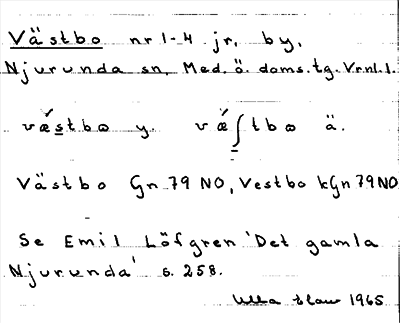 Västbo nr 1-4 jr. by,
Njurunda sn, Med. ö. doms.tg. Vrnl. l.
væstbɷ y. væʃtbɷ ä.
Västbo Gn 79 NO, Vestbo kGn 79 NO
Se Emil Löfgren 'Det gamla
Njurunda' s. 258.
Ulla 1965